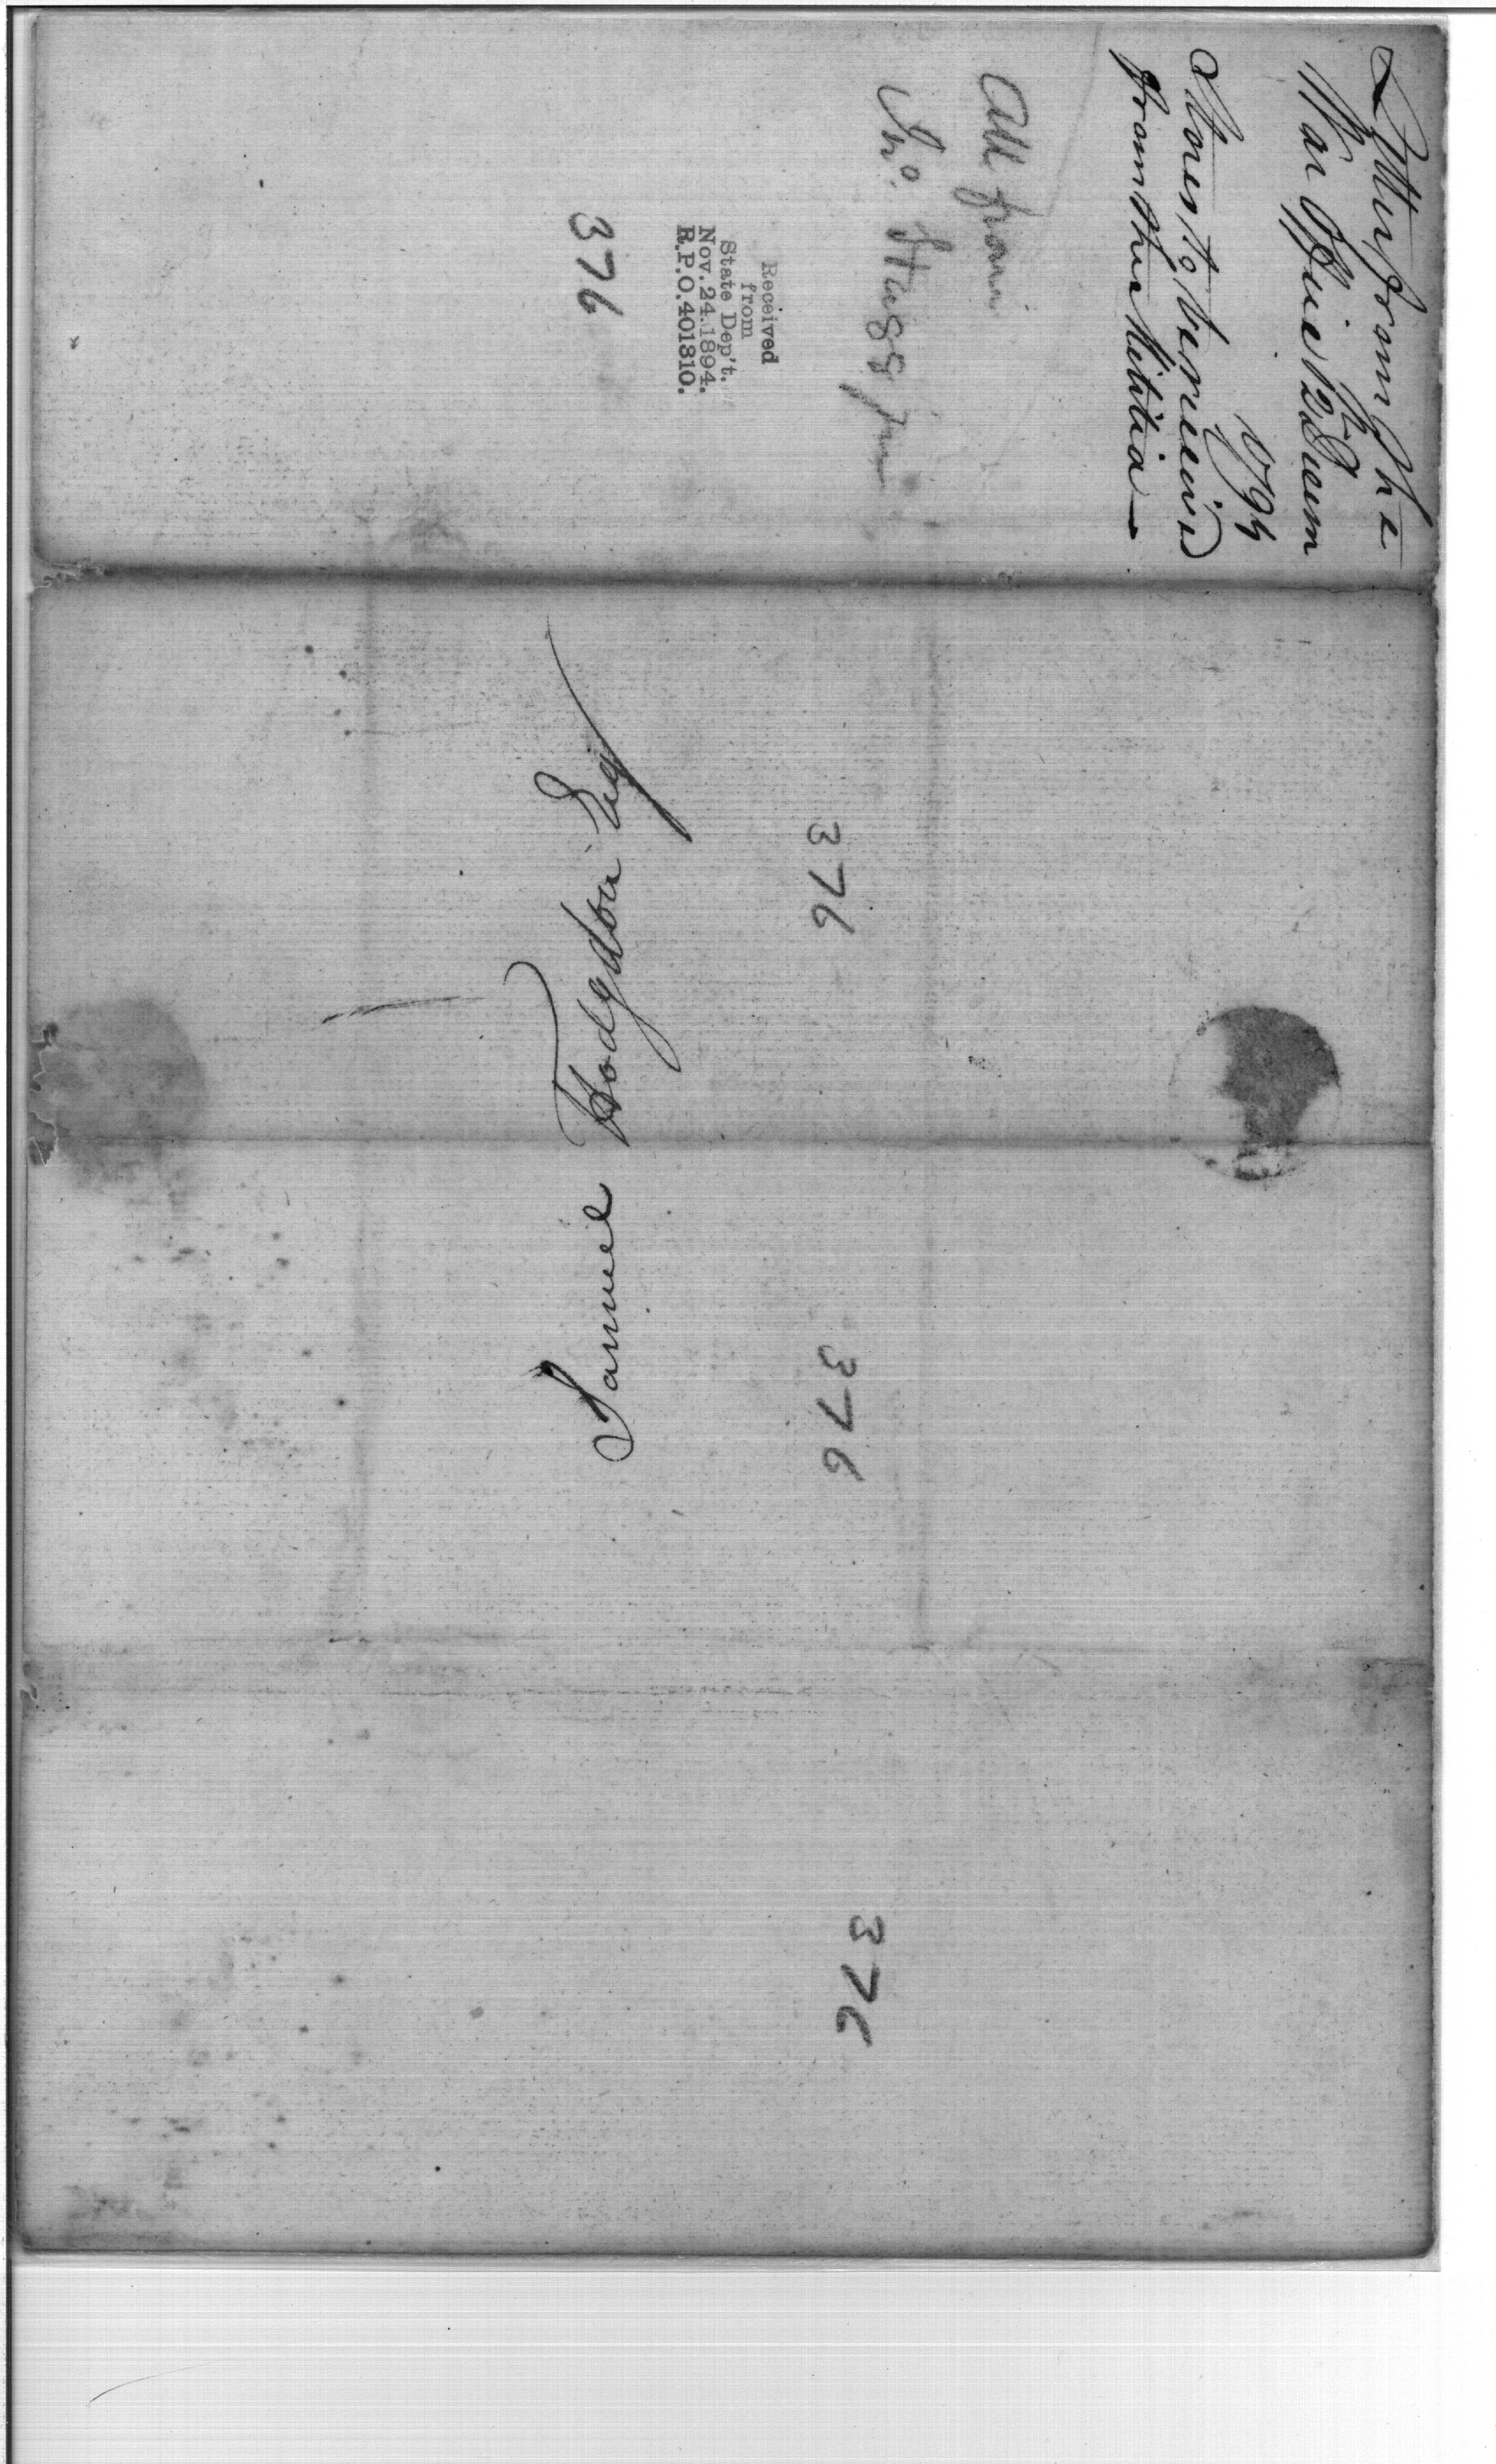 Letter from the
War Office 12th Decem
1794
Stores to be receiv'd
from the Militia —
All from
Jno. Stagg Jun
Received
from
State Dep't.
Nov. 24. 1894.
R.P.O. 401310.
376
Samuel Hodgdon Esq
376
376
376